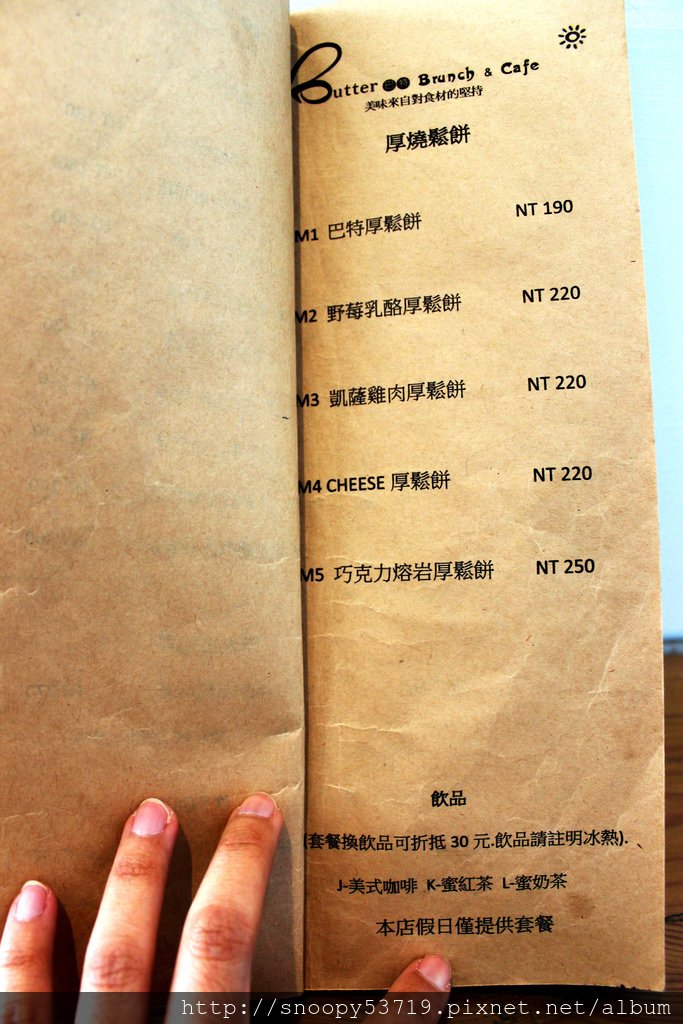 Butter Brunch & Cafe
美味來自對食材的堅持
厚燒鬆餅
M1 巴特厚鬆餅 NT 190
M2 野莓乳酪厚鬆餅 NT 220
M3 凱薩雞肉厚鬆餅 NT 220
M4 CHEESE 厚鬆餅 NT 220
M5 巧克力熔岩厚鬆餅 NT 250
飲品
(套餐換飲品可折抵 30 元.飲品請註明冰熱).
J-美式咖啡 K-蜜紅茶 L-蜜奶茶
本店假日僅提供套餐
http://snoopy53719.pixnet.net/album